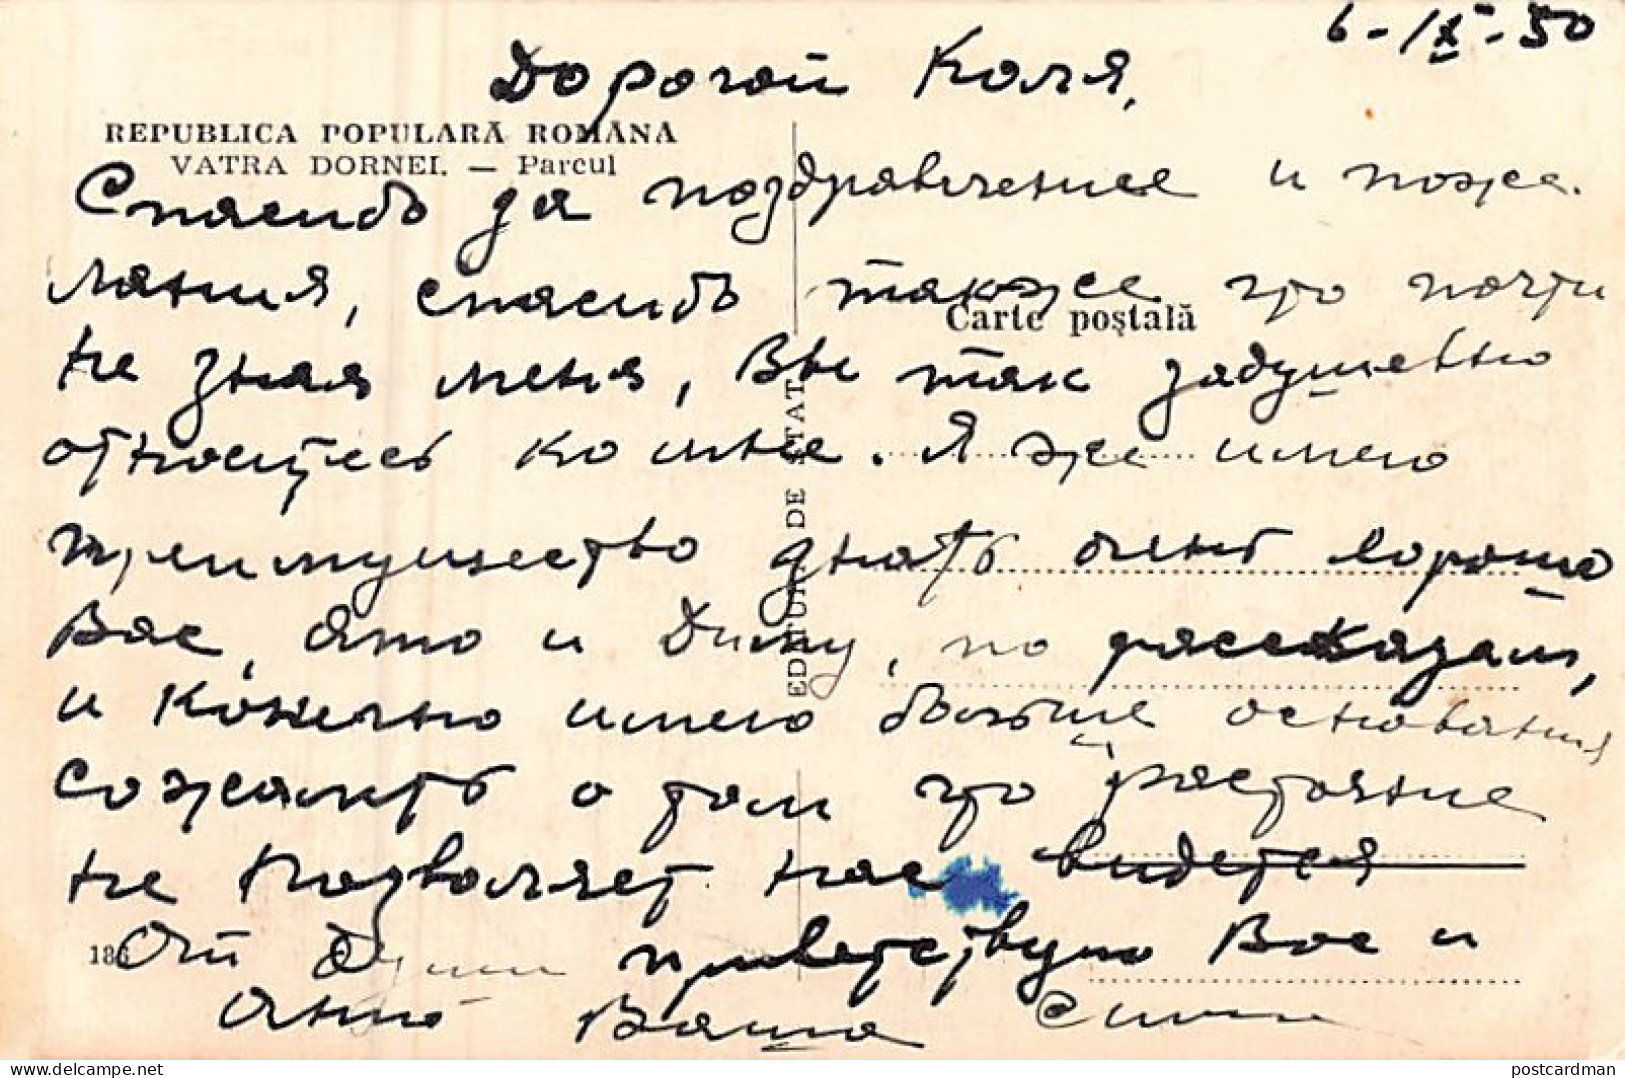 6-IX-50
Дорогой Коля,
REPUBLICA POPULARĂ ROMÂNA
VATRA DORNEI. — Parcul
Спасибо за поздравление и поже-
лания, спасибо также что почти
Carte poştală
не зная меня, Вы так задушевно
относитесь ко мне. Я же имею
преимущество знать очень хорошо
Вас, Аню и Диму, по рассказам,
и конечно имею больше основания
сожалеть о том что расстояние
не позволяет нас видется
От души приветствую Вас и
186
Аню Ваша
EDITURA DE STAT
postcardman
www.delcampe.net